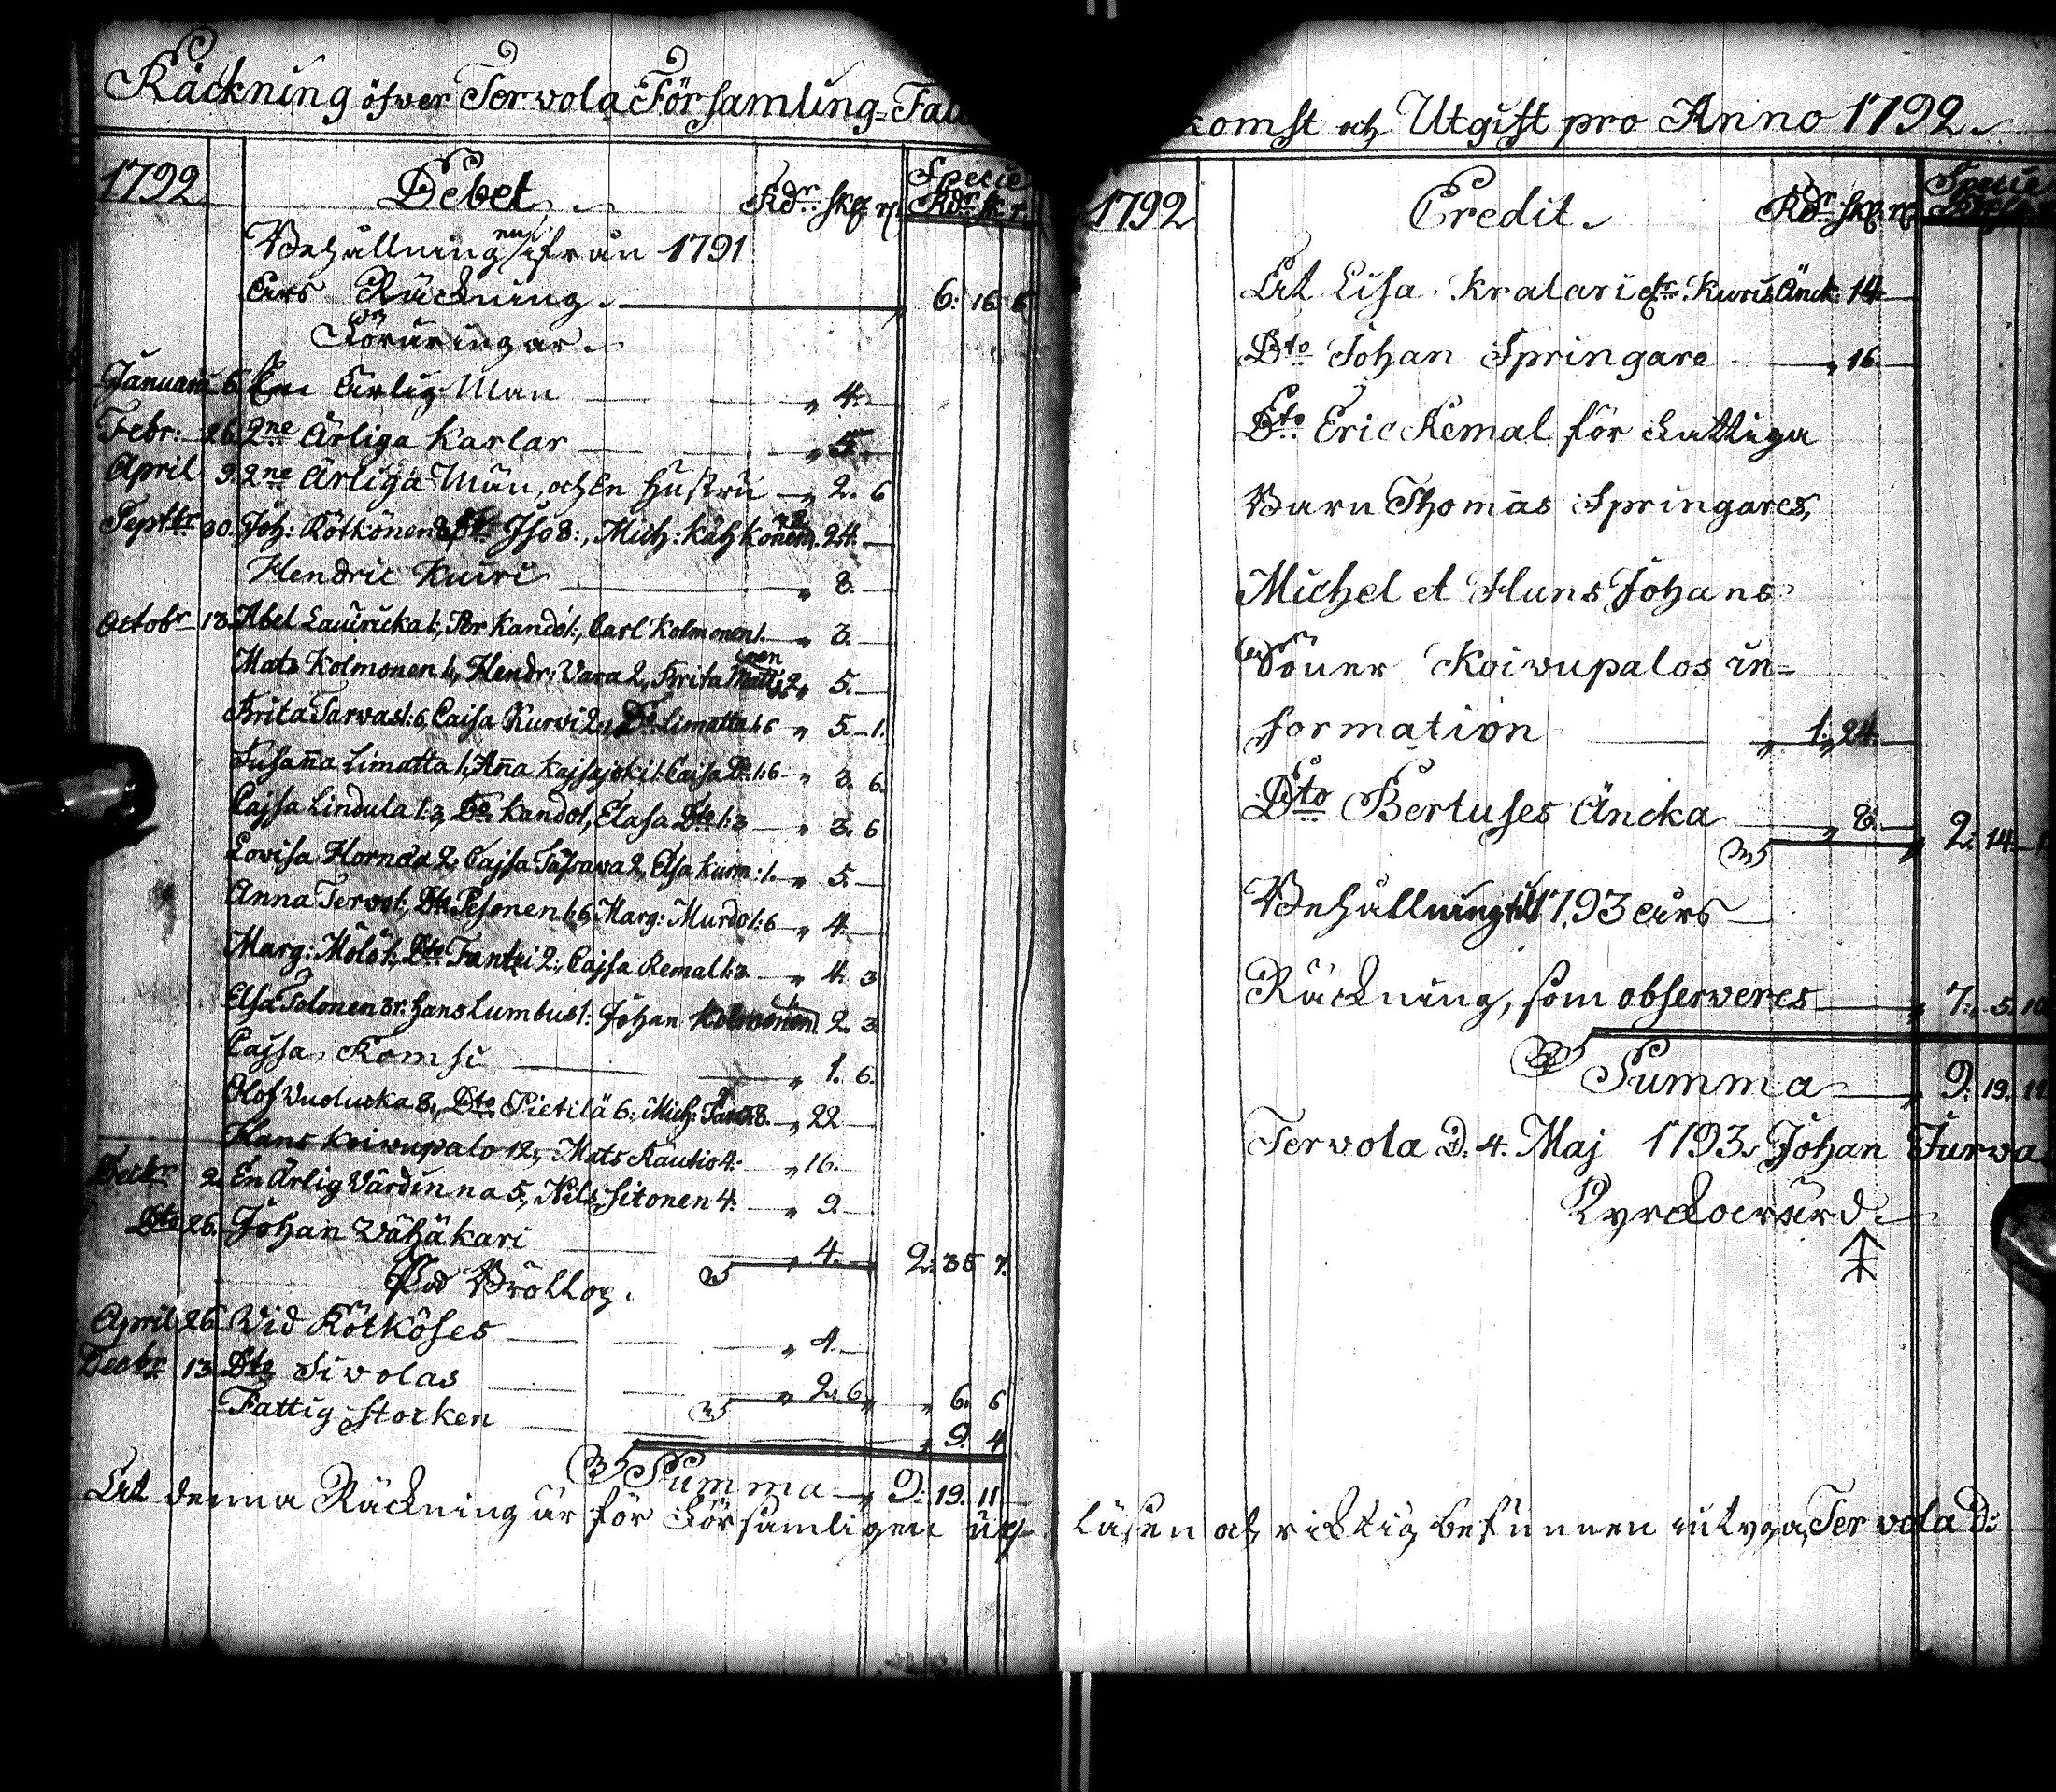 Räckning öfwer Tervola Församling=Fatt
1792 Debet Rdr: skg rs Specie Rdr sk r.
Behållningen ifrån 1791
Års Räckning. 6: 16 6
Föräringar.
Januarii 6 En Ärlig Man " 4.
Febr: 26. 2ne Ärliga Karlar " 5.
April 9. 2ne Ärliga Män, och En Hustru " 2. 6
Septbr 30. Joh: Kötkönen 8, Iso 8:, Mich: Kähkönen 24.
Hendric Kuiri " 8.
Octobr 13. Abel Laurucka 1:, Per Kando 1:, Carl Kolmonen 1. " 3.
Mats Kolmonen 1, Hendr: Vara 2, Brita 2, 5.
Brita Tarvas 1:6, Caisa Kurvi 2:, Do Limatta 1:6 " 5.-1.
Susanna Limatta 1:, Anna Kajsajoki 1: Caisa Do 1:6 " 3. 6.
Cajsa Lindula 1:3, Do Kando 1, Elasa Dto 1:3 " 3. 6
Lovisa Hornda 2, Cajsa Tapava 2, Elsa Kum: 1. " 5.
Anna Tervo 1:, Dto Pesonen 1:6, Marg: Murdo 1:6 " 4.
Marg: Mölö 1:, Dto Fantzi 2:, Cajsa Remal 1:3 " 4. 3
Elsa Tolonen 3r. Hans Lumbus 1: Johan Kolmonen 2. 3
Cajsa Komsi " 1. 6.
Olof Vuolucka 8., Dto Pietilä 6:, Mich: 8. " 22
Hans Koivupalo 12, Mats Rautio 4: " 16.
Decbr 2. En Ärlig Värdinna 5, Nils Sitonen 4: " 9.
Dto 26. Johan Vähäkari " 4. 2: 35 7.
På Bröllop.
April 26. Vid Kötköses " 4.
Decbr 13 Dto Sivolas " 2. 6 " 6. 6
Fattig stocken " 9. 4
Summa " 9: 19. 11
At denna Räckning är för Församligen up
komst och Utgift pro Anno 1792.
1792 Credit. Rdr skg. rs Specie
At Lisa Kralari fr. Kuris Änck. 14
Dto Johan Springare " 16.
Dto Eric Remal för Fattiga
Barn Thomas Springares,
Michel et Hans Johans
Söner Koivupalos in=
formation " 1: 24.
Dto Bertuses Äncka " 8. 2: 14.
Behållning till 1793 års
Räckning, som observeres " 7: 5. 10
Summa " 9: 19. 11
Tervola D. 4. Maj 1793. Johan Turva
Kyrckovärd.
läsen och riktig befunnen intyga, Tervola d: